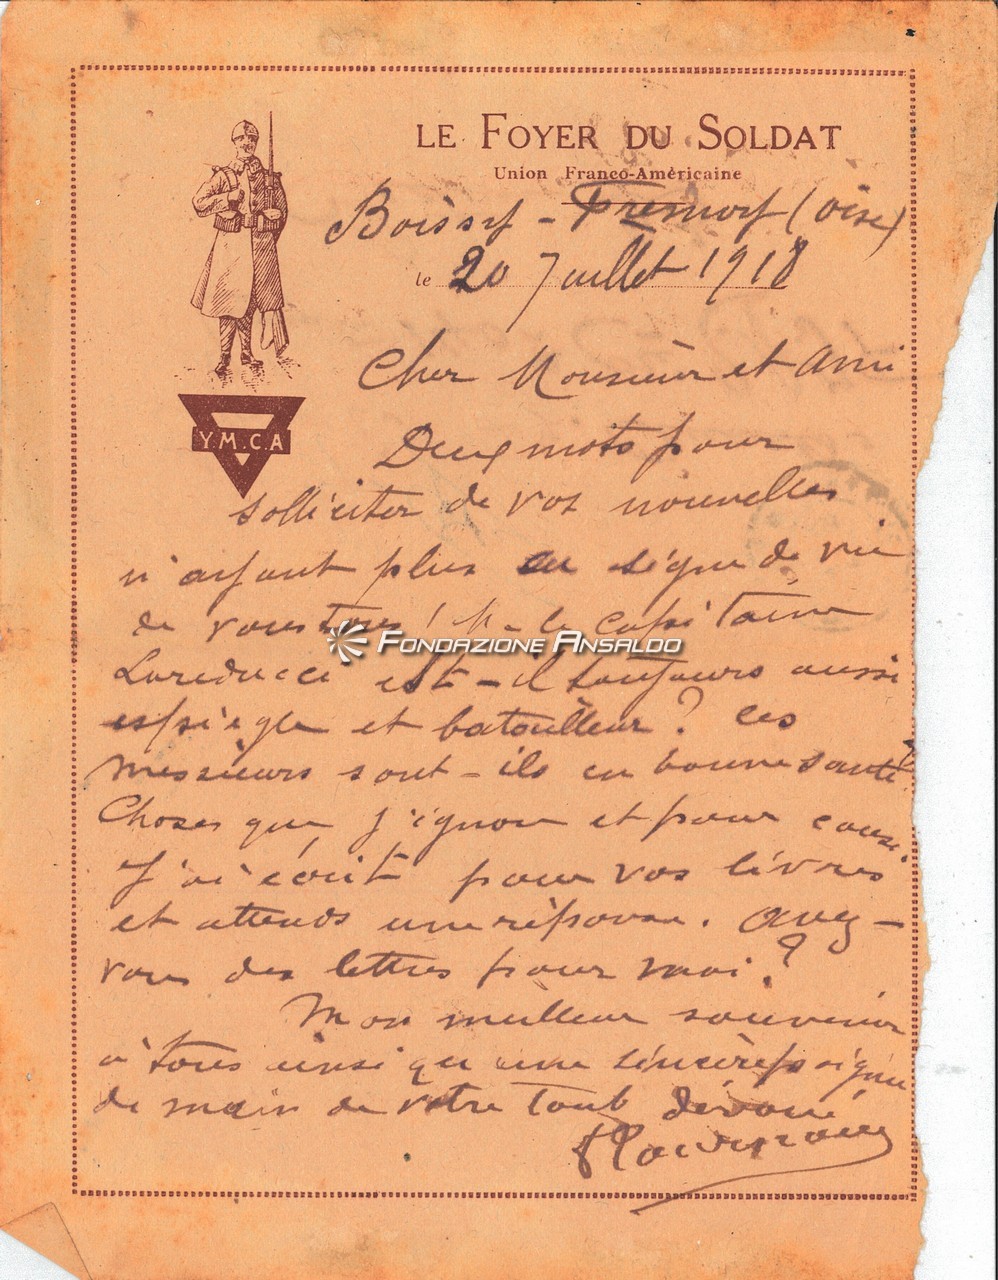 LE FOYER DU SOLDAT
Union Franco-Américaine
Boissy - Fresnoy (Oise)
le 20 Juillet 1918
Y.M.C.A
Cher Monsieur et Ami
Deux mots pour
solliciter de vos nouvelles
n'ayant plus eu signe de vie
de vous tous! Mr le Capitaine
FONDAZIONE ANSALDO
est-il toujours aussi
espiègle et batailleur? Ces
messieurs sont-ils en bonne santé?
Choses que j'ignore et pour cause.
J'ai écrit pour vos livres
et attends une réponse. Avez-
vous des lettres pour moi?
Mon meilleur souvenir
à tous ainsi qu'une sincère poignée
de main de votre tout dévoué